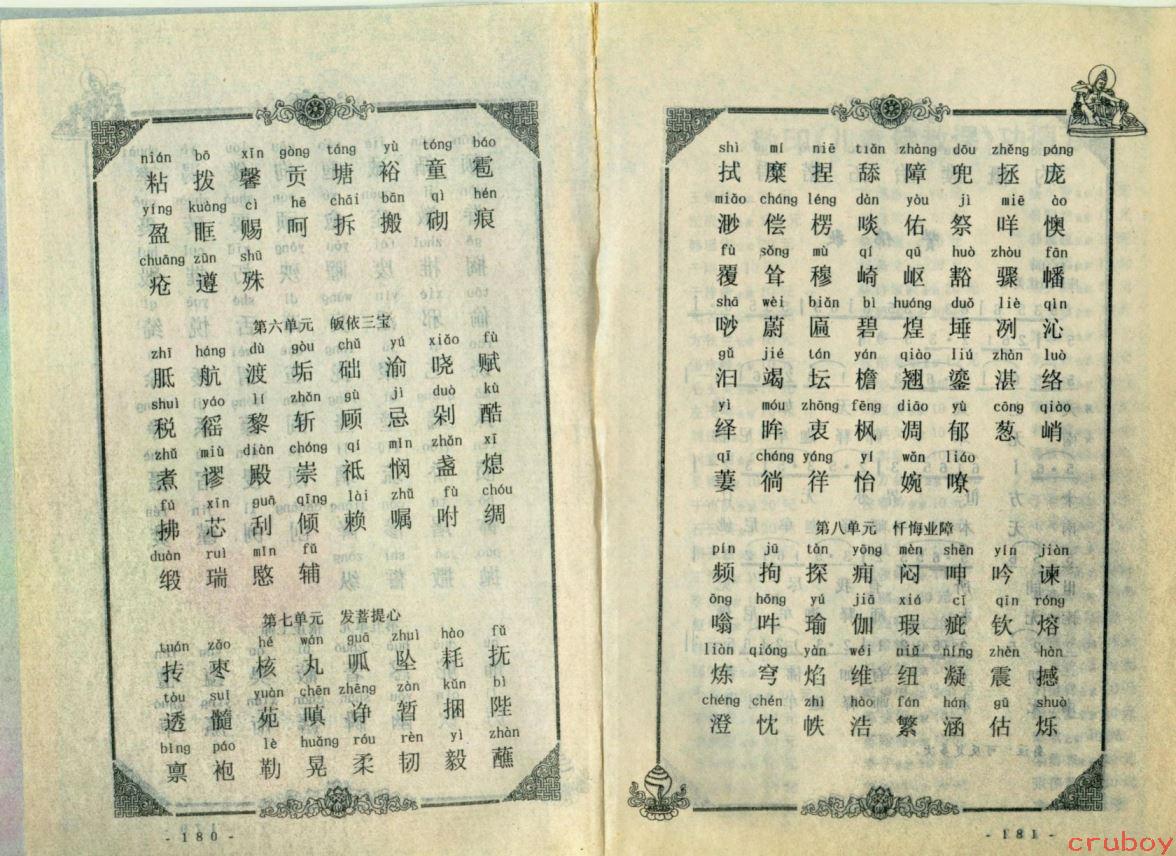 nián bō xīn gòng táng yù tóng báo
粘 拨 馨 贡 塘 裕 童 雹
yíng kuàng cì hē chāi bān qì hén
盈 眶 赐 呵 拆 搬 砌 痕
chuāng zūn shū
疮 遵 殊
第六单元 皈依三宝
zhī háng dù gòu chǔ yú xiǎo fù
胝 航 渡 垢 础 渝 晓 赋
shuì yáo lí zhǎn gù jì duò kù
税 徭 黎 斩 顾 忌 剁 酷
zhǔ miù diàn chóng qí mǐn zhǎn xī
煮 谬 殿 崇 祗 悯 盏 熄
fú xīn guā qīng lài zhǔ fù chóu
拂 芯 刮 倾 赖 嘱 咐 绸
duàn ruì mǐn fǔ
缎 瑞 愍 辅
第七单元 发菩提心
tuán zǎo hé wán guā zhuì hào fǔ
抟 枣 核 丸 呱 坠 耗 抚
tòu suǐ yuàn chēn zhēng zàn kǔn bì
透 髓 苑 嗔 诤 暂 捆 陛
bǐng páo lè huǎng róu rèn yì zhàn
禀 袍 勒 晃 柔 韧 毅 蘸
- 180 -
shì mí niē tiǎn zhàng dōu zhěng páng
拭 糜 捏 舔 障 兜 拯 庞
miǎo cháng léng dàn yòu jì miē ào
渺 偿 楞 啖 佑 祭 咩 懊
fù sǒng mù qí qū huò zhòu fān
覆 耸 穆 崎 岖 豁 骤 幡
shā wèi biǎn bì huáng duǒ liè qìn
唦 蔚 匾 碧 煌 埵 冽 沁
gǔ jié tán yán qiào liú zhàn luò
汩 竭 坛 檐 翘 鎏 湛 络
yì móu zhōng fēng diāo yù cōng qiào
绎 眸 衷 枫 凋 郁 葱 峭
qī cháng yáng yí wǎn liáo
萋 徜 徉 怡 婉 嘹
第八单元 忏悔业障
pín jū tàn yōng mèn shēn yín jiàn
频 拘 探 痈 闷 呻 吟 谏
ōng hōng yú jiā xiá cī qīn róng
嗡 吽 瑜 伽 瑕 疵 钦 熔
liàn qióng yàn wéi niǔ níng zhèn hàn
炼 穹 焰 维 纽 凝 震 撼
chéng chén zhì hào fán hán gū shuò
澄 忱 帙 浩 繁 涵 估 烁
- 181 -
cruboy